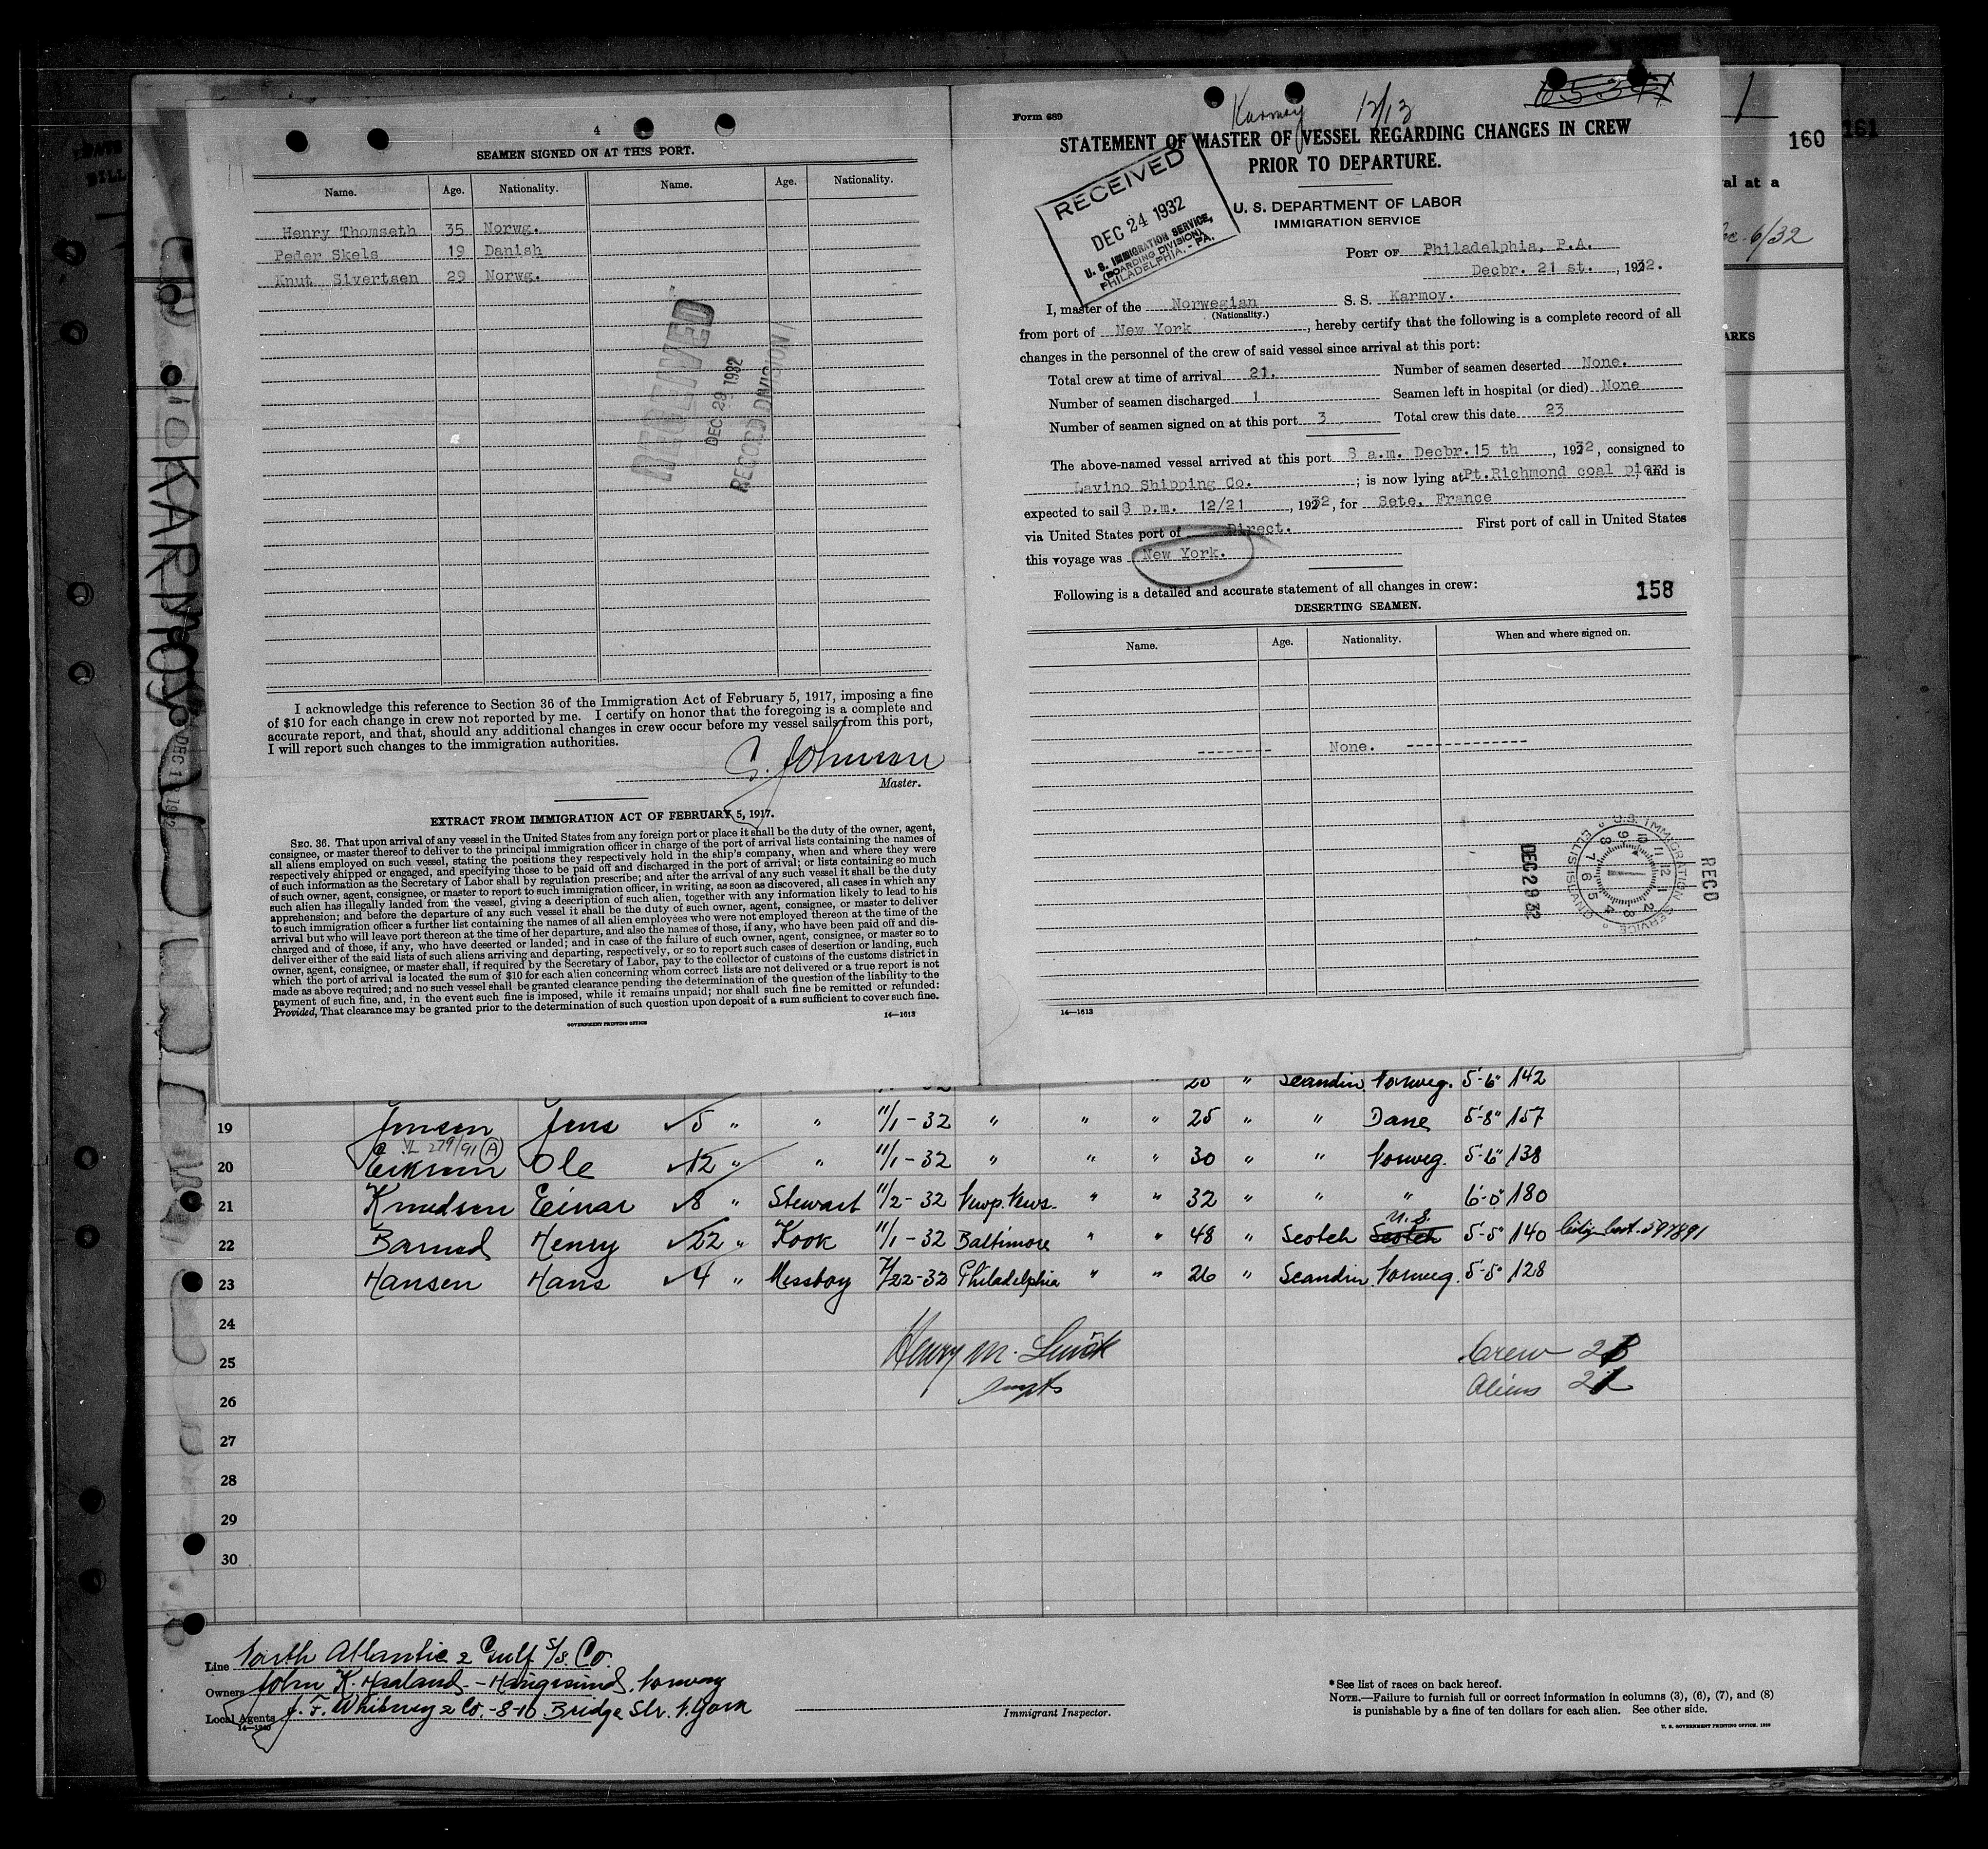 4
SEAMEN SIGNED ON AT THIS PORT.
Name. Age. Nationality. Name. Age. Nationality.
Henry Thomseth 35 Norwg.
Peder Skels 19 Danish
Knut Sivertsen 29 Norwg.
RECEIVED
DEC 29 1932
RECORD DIVISION
I acknowledge this reference to Section 36 of the Immigration Act of February 5, 1917, imposing a fine
of $10 for each change in crew not reported by me. I certify on honor that the foregoing is a complete and
accurate report, and that, should any additional changes in crew occur before my vessel sails from this port,
I will report such changes to the immigration authorities.
Johnson
Master.
EXTRACT FROM IMMIGRATION ACT OF FEBRUARY 5, 1917.
SEC. 36. That upon arrival of any vessel in the United States from any foreign port or place it shall be the duty of the owner, agent,
consignee, or master thereof to deliver to the principal immigration officer in charge of the port of arrival lists containing the names of
all aliens employed on such vessel, stating the positions they respectively hold in the ship's company, when and where they were
respectively shipped or engaged, and specifying those to be paid off and discharged in the port of arrival; or lists containing so much
of such information as the Secretary of Labor shall by regulation prescribe; and after the arrival of any such vessel it shall be the duty
of such owner, agent, consignee, or master to report to such immigration officer, in writing, as soon as discovered, all cases in which any
such alien has illegally landed from the vessel, giving a description of such alien, together with any information likely to lead to his
apprehension; and before the departure of any such vessel it shall be the duty of such owner, agent, consignee, or master to deliver
to such immigration officer a further list containing the names of all alien employees who were not employed thereon at the time of the
arrival but who will leave port thereon at the time of her departure, and also the names of those, if any, who have been paid off and dis-
charged and of those, if any, who have deserted or landed; and in case of the failure of such owner, agent, consignee, or master so to
deliver either of the said lists of such aliens arriving and departing, respectively, or so to report such cases of desertion or landing, such
owner, agent, consignee, or master shall, if required by the Secretary of Labor, pay to the collector of customs of the customs district in
which the port of arrival is located the sum of $10 for each alien concerning whom correct lists are not delivered or a true report is not
made as above required; and no such vessel shall be granted clearance pending the determination of the question of the liability to the
payment of such fine, and, in the event such fine is imposed, while it remains unpaid; nor shall such fine be remitted or refunded:
Provided, That clearance may be granted prior to the determination of such question upon deposit of a sum sufficient to cover such fine.
GOVERNMENT PRINTING OFFICE
14—1613
Form 689
Karmoy 12/13
STATEMENT OF MASTER OF VESSEL REGARDING CHANGES IN CREW
PRIOR TO DEPARTURE.
RECEIVED
DEC 24 1932
U. S. IMMIGRATION SERVICE,
(BOARDING DIVISION)
PHILADELPHIA, - PA.
U. S. DEPARTMENT OF LABOR
IMMIGRATION SERVICE
PORT OF Philadelphia, P.A.
Decbr. 21 st. , 1932.
I, master of the Norwegian S. S. Karmoy.
(Nationality.)
from port of New York , hereby certify that the following is a complete record of all
changes in the personnel of the crew of said vessel since arrival at this port:
Total crew at time of arrival 21. Number of seamen deserted None.
Number of seamen discharged 1 Seamen left in hospital (or died) None
Number of seamen signed on at this port 3 Total crew this date 23
The above-named vessel arrived at this port 8 a.m. Decbr. 15 th , 1932, consigned to
Lavino Shipping Co. ; is now lying at Pt. Richmond coal pier, and is
expected to sail 8 p.m. 12/21 , 1932, for Sete, France
via United States port of Direct. First port of call in United States
this voyage was New York.
Following is a detailed and accurate statement of all changes in crew:
158
DESERTING SEAMEN.
Name. Age. Nationality. When and where signed on.
None.
DEC 29 32
U.S. IMMIGRATION SERVICE ELLIS ISLAND
RECD
14—1613
1
160
161
val at a
6/32
ARKS
KARMOY
Scandin. Norweg. 5'-6" 142
19 Jensen Jens 5 " " 11/1-32 " " " 25 " " Dane 5'-8" 157
20 Eriksen Ole 12 " " 11/1-32 " " " 30 " " Norweg. 5'-6" 138
21 Knudsen Einar 8 " Stewart 11/2-32 Newp. News. " " 32 " " " 6'-0" 180
U.S.
22 Barned Henry 22 " Kook 11/1-32 Baltimore " " 48 " Scotch Scotch 5'-5" 140
23 Hansen Hans 4 " Messboy 7/22-32 Philadelphia " " 26 " Scandin. Norweg. 5'-5" 128
24
25 Henry M. Crew 23
26 Aliens 22
27
28
29
30
Line North Atlantic & Gulf S/S. Co.
Owners John K. Haaland - Haugesund, Norway
Local Agents J. F. Whitney & Co. - 8-10 Bridge Str. N. York
Immigrant Inspector.
*See list of races on back hereof.
NOTE.—Failure to furnish full or correct information in columns (3), (6), (7), and (8)
is punishable by a fine of ten dollars for each alien. See other side.